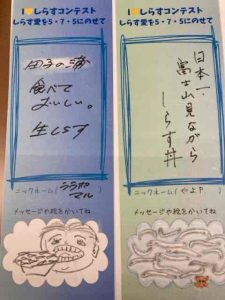 I💛しらすコンテスト
しらす愛を5・7・5にのせて
田子の浦
食べて
おいしい。
生しらす
ニックネーム(ララポマル)
メッセージや絵をかいてね
I💛しらすコンテスト
しらす愛を5・7・5にのせて
日本一、
富士山見ながら
しらす丼
ニックネーム(やよP.)
メッセージや絵をかいてね